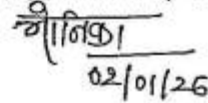 मोनिका
02/01/26